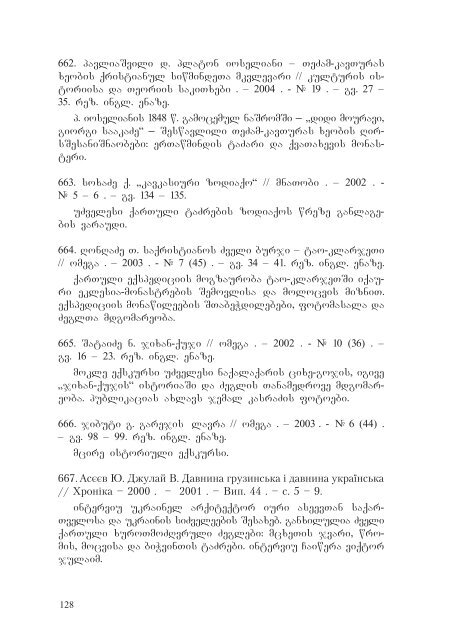 662. პავლიაშვილი დ. პლატონ იოსელიანი – თეძამ-კავთურას
ხეობის ქრისტიანულ სიწმინდეთა მკვლევარი // კულტურის ის-
ტორიისა და თეორიის საკითხები . – 2004 . - № 19 . – გვ. 27 –
35. რეზ. ინგლ. ენაზე.
პ. იოსელიანის 1848 წ. გამოცემულ ნაშრომში – „დიდი მოურავი,
გიორგი სააკაძე“ – შესწავლილი თეძამ-კავთურას ხეობის ღირ-
სშესანიშნაობები: ერთაწმინდის ტაძარი და ქვათახევის მონას-
ტერი.
663. სოხაძე ქ. „კავკასიური ზოდიაქო“ // მნათობი . – 2002 . -
№ 5 – 6 . – გვ. 134 – 135.
უძველესი ქართული ტაძრების ზოდიაქოს წრეზე განლაგე-
ბის ვარაუდი.
664. ღონღაძე თ. საქრისტიანოს ძველი ბურჯი – ტაო-კლარჯეთი
// ომეგა . – 2003 . - № 7 (45) . – გვ. 34 – 41. რეზ. ინგლ. ენაზე.
ქართული ექსპედიციის მოგზაურობა ტაო-კლარჯეთში იქაუ-
რი ეკლესია-მონასტრების შემოვლისა და მოლოცვის მიზნით.
ექსპედიციის მონაწილეების შთაბეჭდილებები, ფოტომასალა და
ძეგლთა მდგომარეობა.
665. შატაიძე ნ. ჯიხან-ქუჯი // ომეგა . – 2002 . - № 10 (36) . –
გვ. 16 – 23. რეზ. ინგლ. ენაზე.
მოკლე ექსკურსი უძველესი ნაქალაქარის ციხე-გოჯის, იგივე
„ჯიხან-ქუჯის“ ისტორიაში და ძეგლის თანამედროვე მდგომარ-
ეობა. პუბლიკაციას ახლავს ჯემალ კასრაძის ფოტოები.
666. ჯიბუტი გ. გარეჯის ლავრა // ომეგა . – 2003 . - № 6 (44) .
– გვ. 98 – 99. რეზ. ინგლ. ენაზე.
მცირე ისტორიული ექსკურსი.
667. Асєєв Ю. Джулай В. Давнина грузинська і давнина українська
// Хроніка – 2000 . – 2001 . – Вип. 44 . – с. 5 – 9.
ინტერვიუ უკრაინელ არქიტექტორ იური ასეევთან საქარ-
თველოსა და უკრაინის სიძველეების შესახებ. განხილულია ძველი
ქართული ხუროთმოძღვრული ძეგლები: მცხეთის ჯვარი, წრო-
მის, მოცვისა და ბიჭვინთის ტაძრები. ინტერვიუ ჩაიწერა ვიქტორ
ჯულაიმ.
128